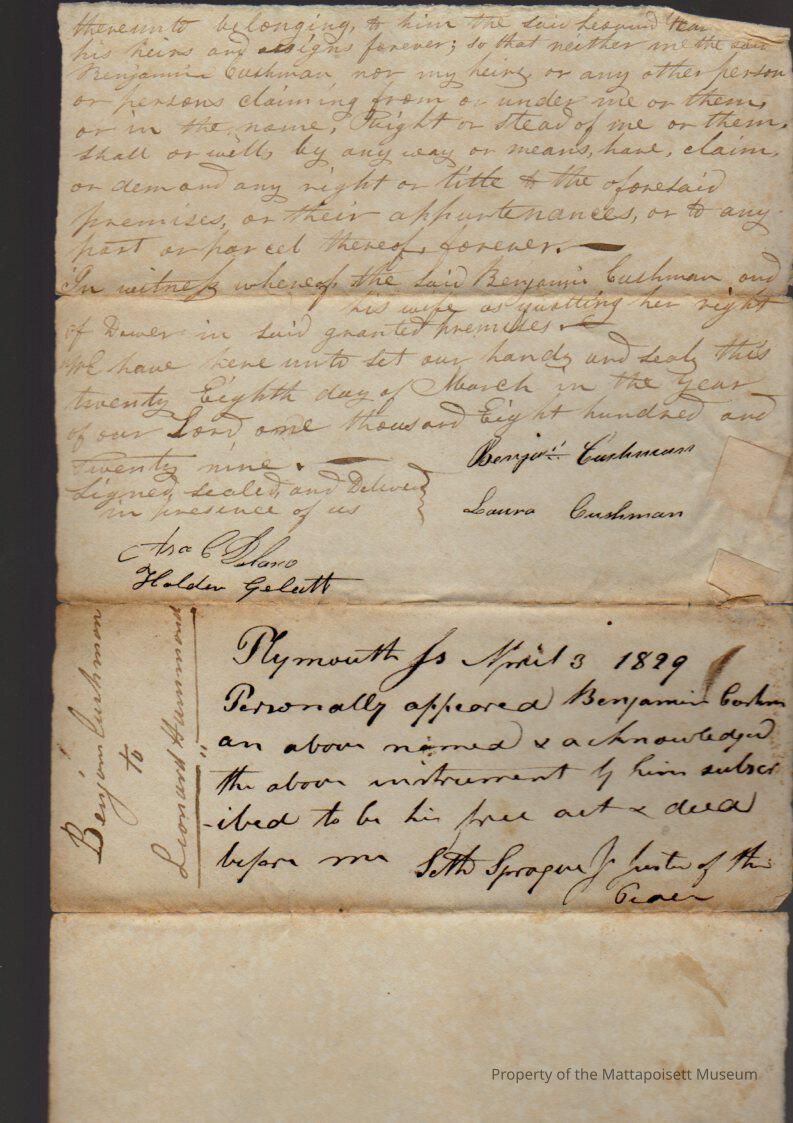 thereunto belonging, to him the said Leonard Ham
his heirs and assigns forever; so that neither me the said
Benjamin Cushman nor my heirs, or any other person
or persons claiming from or under me or them,
or in the name, Right or Stead of me or them,
shall or will, by any way or means, have, claim,
or demand any right or title to the aforesaid
premises, or their appurtenances, or to any
part or parcel thereof, forever.
In witness whereof, the said Benjamin Cushman and
his wife as quitting her right
of Dower in said granted premises.
We have here unto set our hands and seals this
twenty Eighth day of March in the Year
of our Lord one thousand Eight hundred and
Twenty nine.
Signed, sealed, and Delivered
in presence of us
Benjn Cushman
Laura Cushman
Asa C Delano
Holder Gelett
Benjam Cushman
to
Leonard Hammond
Plymouth Ss April 3 1829
Personally appeared Benjamin Cushm
an above named & acknowledged
the above instrument by him subscr
-ibed to be his free act & deed
before me Seth Sprague Jr Juste of the
Peace
Property of the Mattapoisett Museum